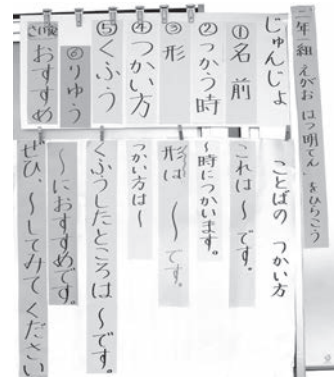 一年組 えがお はつ明てん をひらこう
じゅんじょ
①名前
②つかう時
③形
④つかい方
⑤くふう
⑥りゆう
さいご
おすすめ
ことばの つかい方
これは〜です。
〜時につかいます。
形は 〜です。
つかい方は〜
くふうしたところは〜です。
〜におすすめです。
ぜひ、〜してみてください